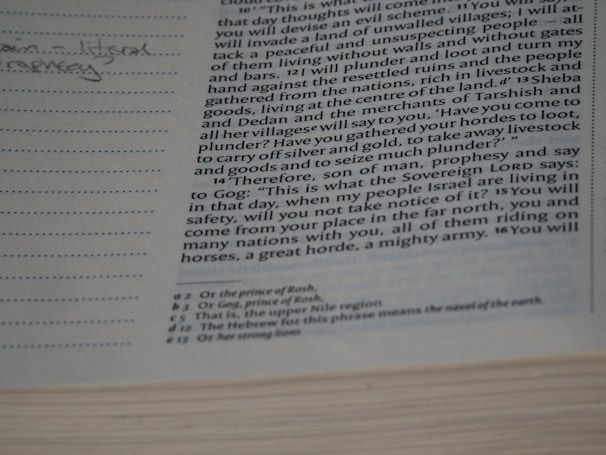 ain - literal
prophecy,
cloud
10 '"This is what
that day thoughts will come
you will devise an evil scheme. 11 You
will invade a land of unwalled villages; I will at-
tack a peaceful and unsuspecting people – all
of them living without walls and without gates
and bars. 12 I will plunder and loot and turn my
hand against the resettled ruins and the people
gathered from the nations, rich in livestock and
goods, living at the centre of the land.d 13 Sheba
and Dedan and the merchants of Tarshish and
all her villagese will say to you, 'Have you come to
plunder? Have you gathered your hordes to loot,
to carry off silver and gold, to take away livestock
and goods and to seize much plunder?' "
14 'Therefore, son of man, prophesy and say
to Gog: "This is what the Sovereign LORD says:
in that day, when my people Israel are living in
safety, will you not take notice of it? 15 You will
come from your place in the far north, you and
many nations with you, all of them riding on
horses, a great horde, a mighty army. 16 You will
a 2 Or the prince of Rosh,
b 3 Or Gog, prince of Rosh,
c 5 That is, the upper Nile region
d 12 The Hebrew for this phrase means the navel of the earth
e 13 Or her strong lions